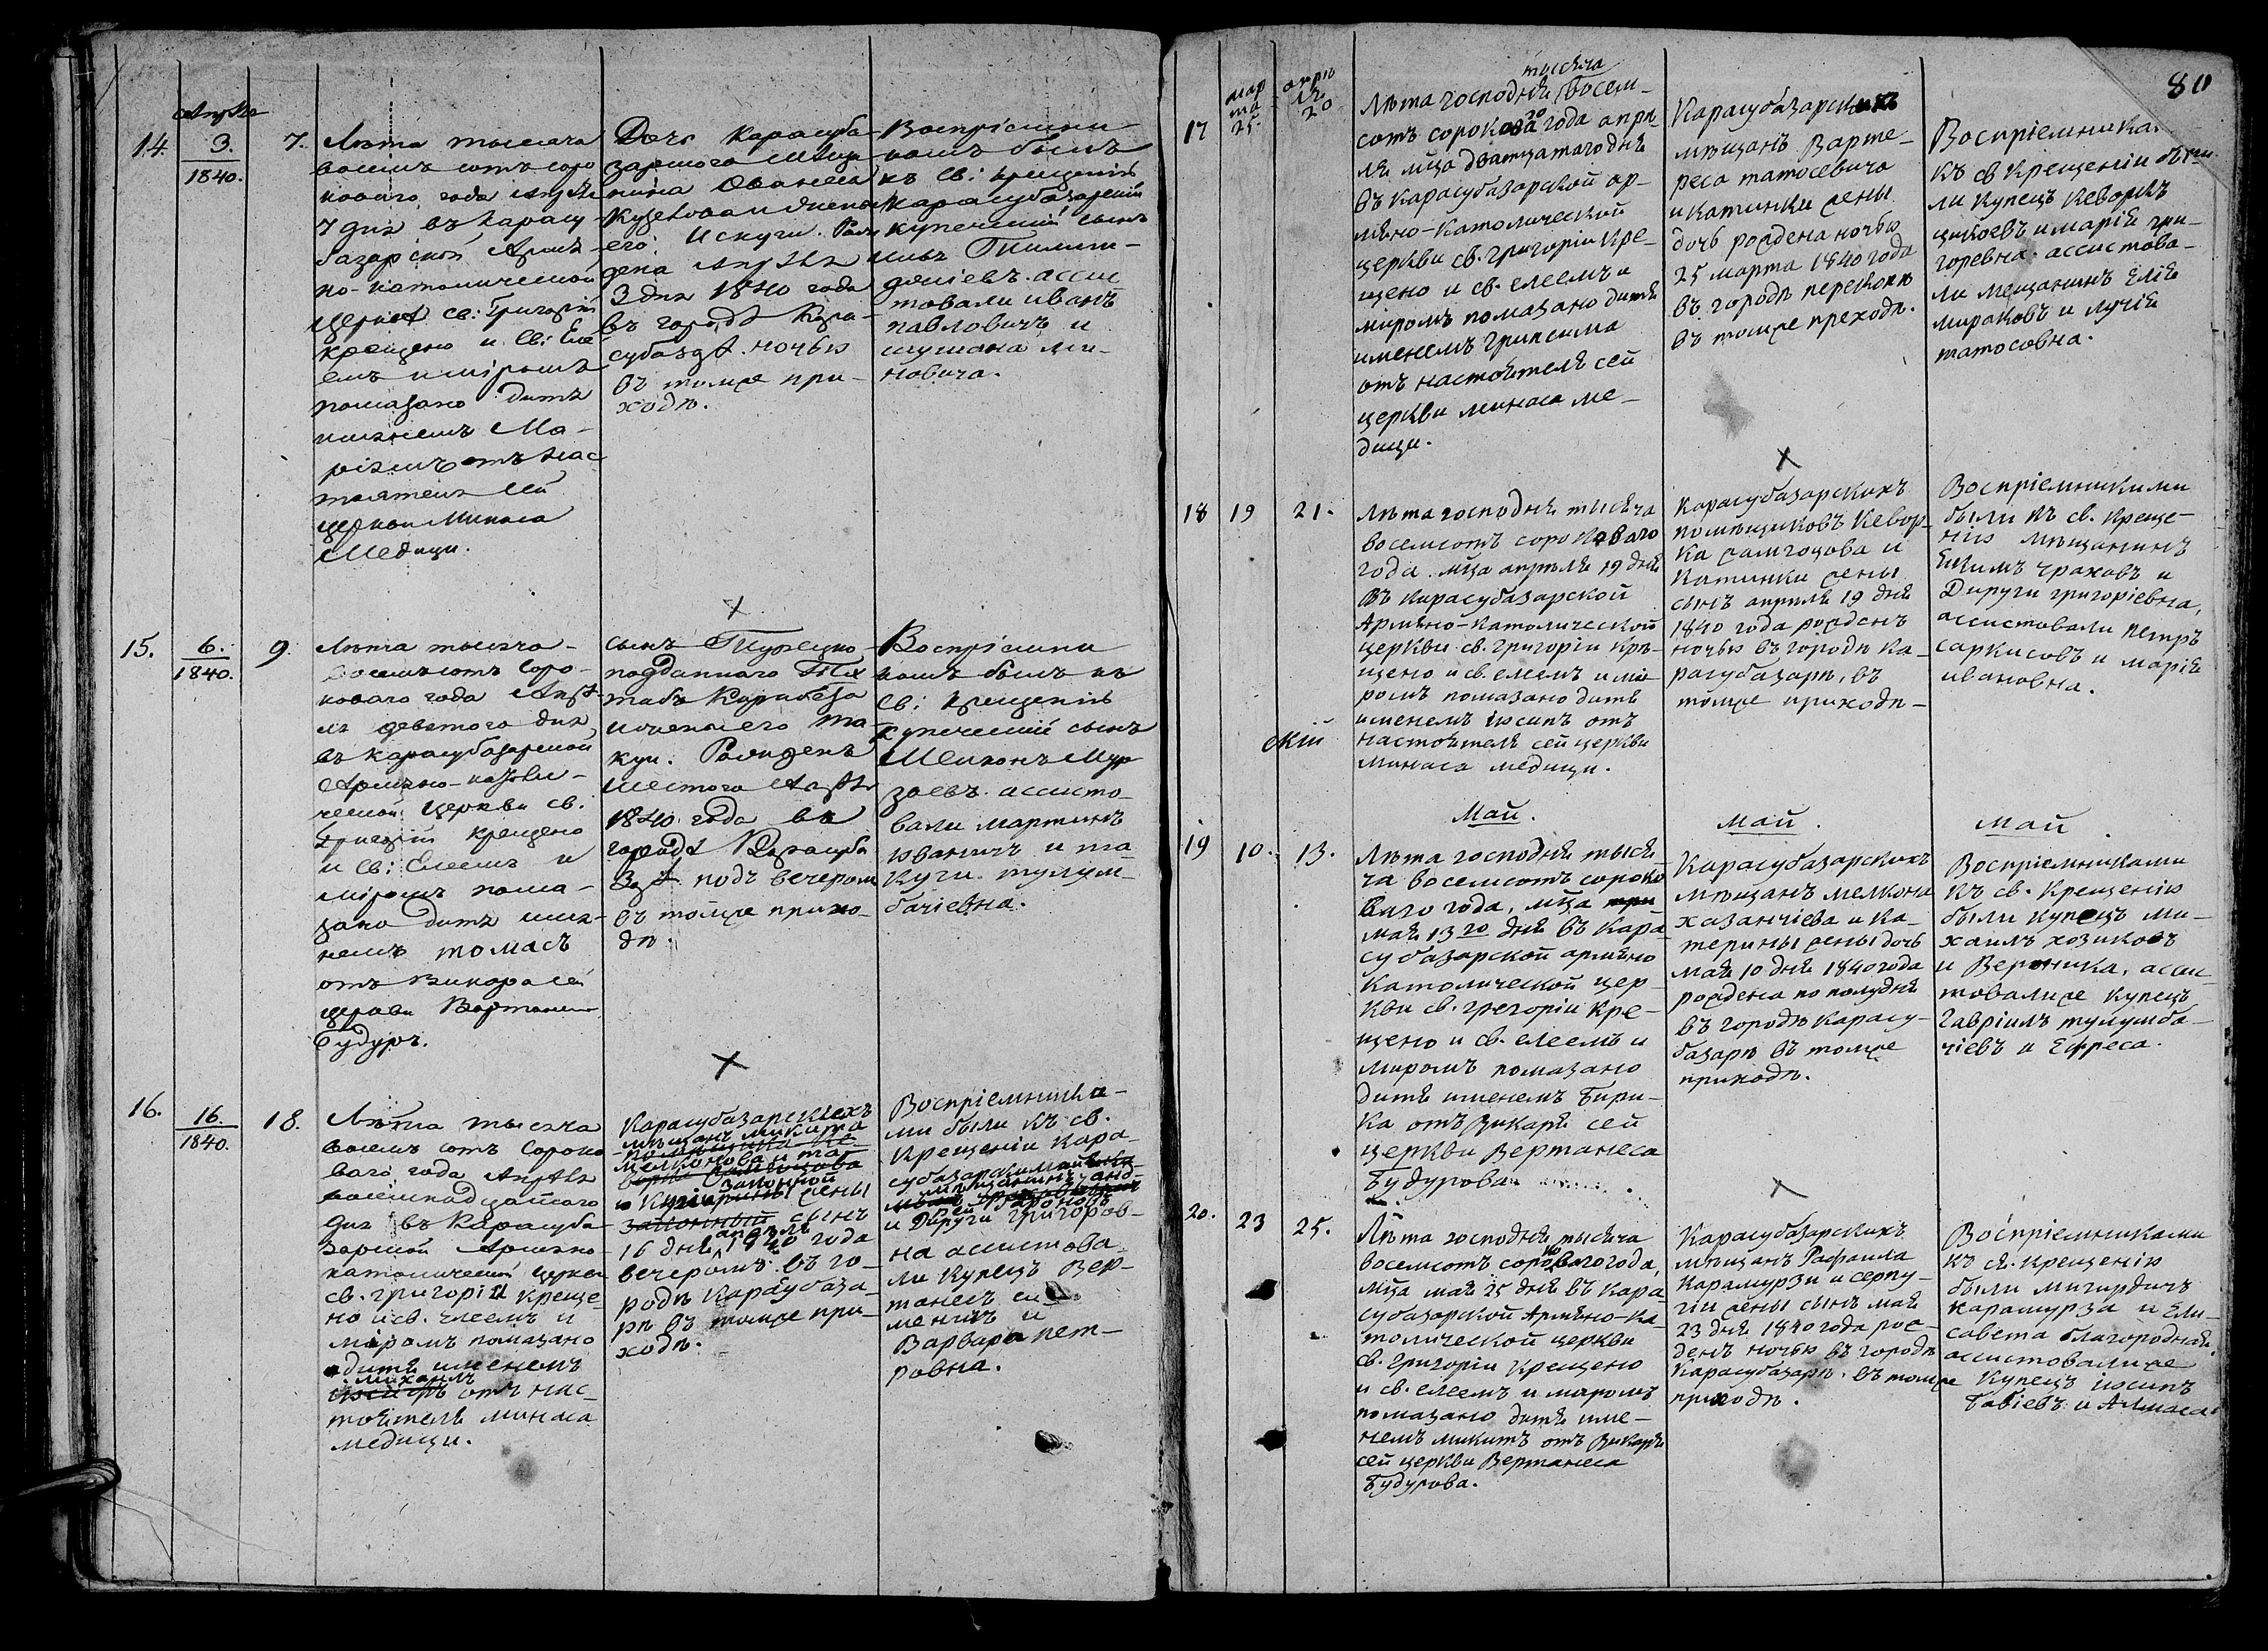 14.
3.
1840.
7.
Лѣта тысяча
восемь сотъ соро
коваго года Апрѣля
7 дня въ Карасу
базарской Армя
но-католической
Церкви св: Григорія
крещено и св: Еле
емъ и міромъ
помазано дитя
именемъ Ма-
ріямъ отъ нас
тоятеля сей
церкви Минаса
Медици.
Дочь Карасуба
зарскаго мѣща
нина Ованеса
и жены
его Искуги. Рож
дена Апрѣля
3 дня 1840 года
въ городѣ Кара-
субазрѣ. ночью
въ томже при-
ходѣ.
Воспріемни
комъ былъ
къ св: крещенію
Карасубазарскій
купеческій сынъ
асси
товали иванъ
павловичъ и
шушана ми-
новича.
15.
6.
1840.
9.
Лѣта тысяча
восемьсотъ соро-
коваго года Апрѣ-
ля девятого дня
въ Карасубазарской
Армяно-католи-
ческой церкви св.
Григорій крещено
и св: Елеемъ и
міромъ пома-
зано дитя име-
немъ томасъ
отъ Викара сей
церкви Вартанеса
Будуръ.
сынъ Турецко
подданнаго
Карабеза
и жены его та
куи. Рожденъ
шестого Апрѣля
1840 года въ
городѣ Карасуба
зрѣ подъ вечеромъ
въ томже прихо-
дѣ.
Воспріемни
комъ былъ къ
св: крещенію
купеческій сынъ
Мелконъ Мур
заевъ. ассисто
вали мартинъ
ивановичъ и та
куги тулум-
бачіевна.
16.
16.
1840.
18.
Лѣта тысяча
восемь сотъ сороко
ваго года Апрѣля
восемнадцатаго
дня въ Карасуба
зарской Армяно
католической церкви
св. григорія креще-
но и св. елеемъ и
міромъ помазано
дитя именемъ
михаилъ
отъ нас-
тоятеля минаса
медици.
Карасубазарскихъ
мѣщанъ микита
мелконова и та
законной
жены
законный сынъ
16 дня апрѣля 1840 года
вечеромъ въ го-
родѣ Карасубаза-
рѣ въ томже при-
ходѣ.
Воспріемника-
ми были къ св.
крещеніи кара-
субазарским
мѣщанинъ анд-
и Дируги григоров-
на ассистова
ли купецъ вер-
танесъ си
меничъ и
Варвара пет-
ровна.
80
17
мар
та
25.
апрѣ
ля
20
тысяча
Лѣта господня восем-
сотъ сороковаго года апрѣ-
ля мца дватцатаго дня
въ карасубазарской ар-
мяно-католической
церкви св. григоріи кре-
щено и св. елеемъ и
миромъ помазано дитя
именемъ Грипсима
отъ настоятеля сей
церкви минаса ме-
дици.
Карасубазарскихъ
мѣщанъВарте-
реса татосевича
и катинки жены
дочь рождена ночью
25 марта 1840 года
въ городѣ перекопѣ
въ томже преходѣ.
Воспріемника.
къ св крещеніи бы
ли купецъ кеворкъ
цикоевъ и марія гри-
горевна. ассистова-
ли мещанинъ Елія
мираковъ и лучія
татосовна.
18
19
21.
Лѣта господня тысяча
восемсотъ сороковаго
года. мца апрѣля 19 дня
въ карасубазарской
Армяно-католической
церкви св. григоріи кре-
щено и св. елеемъ и ми-
ромъ помазано дитя
именемъ іосипъ отъ
настоятеля сей церкви
минаса медици.
карасубазарскихъ
помѣщиковъ кевор-
ка и
катинки жены
сынъ апрѣля 19 дня
1840 года рожденъ
ночью въ городѣ ка-
расубазарѣ, въ
томже приходѣ-
Воспріемникими
были къ св. креще-
нію мѣщанинъ
Екимъ чраховъ и
Дируги григоріевна,
ассистовали петръ
саркисовъ и марія
ивановна.
май.
май.
май.
19
10.
13.
Лѣта господня тыся
ча восемсотъ сороко
ваго года, мца
мая 13го дня въ кара
субазарской армяно
католической цер-
кви св. грегоріи кре-
щено и св. елеемъ и
миромъ помазано
дитя именемъ Бири-
ка отъ викаря сей
церкви вертанеса
Будурова.
Карасубазарскихъ
мѣщанъ мелкона
хазанчіева и ка-
терины жены дочь
мая 10 дня 1840 года
рождена по полудня
въ городѣ карасу-
базарѣ въ томже
приходѣ.
Воспріемниками
къ св. крещенію
были купецъ ми-
хаилъ хозиковъ
и Вероника. асси-
товалиже купецъ
Гавріилъ тулумба-
чіевъ и Ефреса.
20.
23
25.
Лѣта господня тысяча
восемсотъ сороковаго года,
мца мая 25 дня въ кара
субазарской Армяно-ка-
толической церкви
св. григоріи крещено
и св. елеемъ и миромъ
помазано дитя име-
немъ микитъ отъ викаря
сей церкви вертанеса
Будурова.
Карасубазарскихъ
мѣщанъ Рафаила
карамурзи и серпу-
гіи жены сынъ мая
23 дня 1840 года рож-
денъ ночью въ городѣ
карасубазарѣ. въ томже
приходѣ.
Воспріемниками
къ св. крещенію
были мигирдичъ
карамурза и Ели-
савета благородная.
ассистовалиже
купецъ іосипъ
бабіевъ и Алмаса.